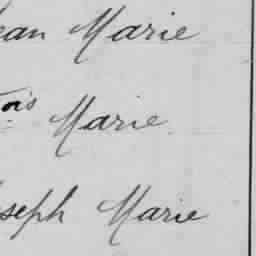 ean Marie
ois Marie
oseph Marie